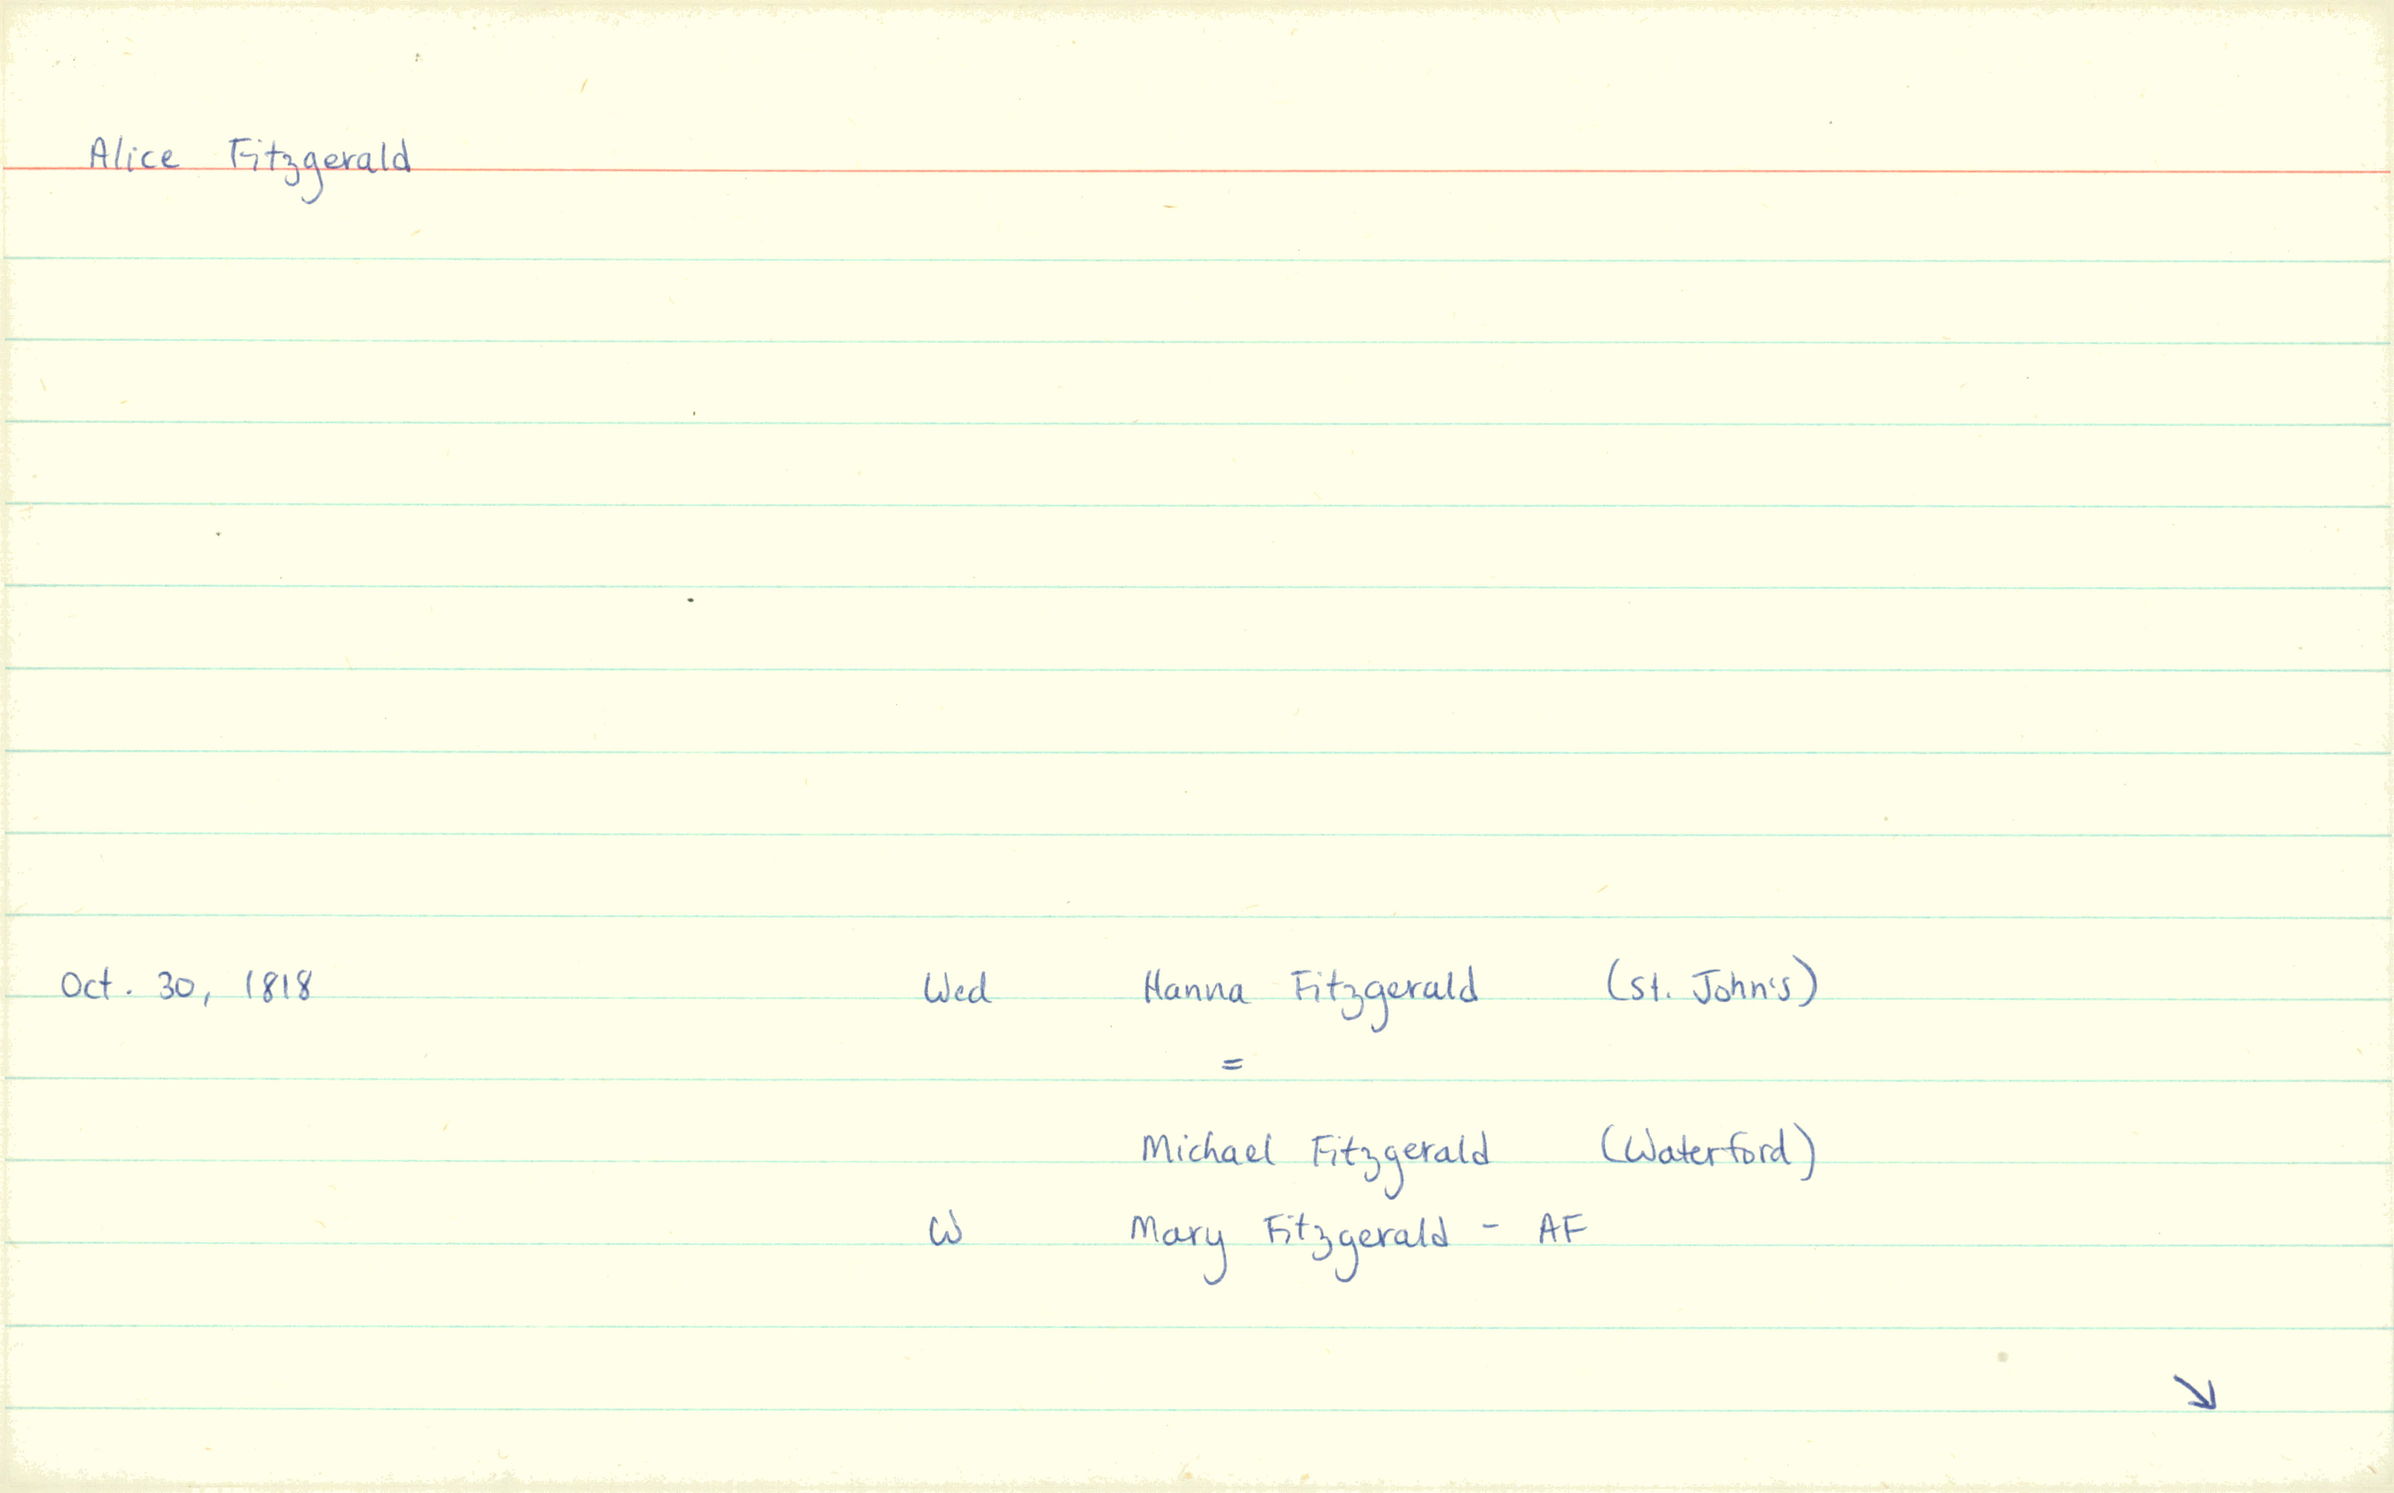 Alice Fitzgerald
Oct. 30, 1818 Wed Hanna Fitzgerald (St. John's)
=
Michael Fitzgerald (Waterford)
W Mary Fitzgerald - AF
↘